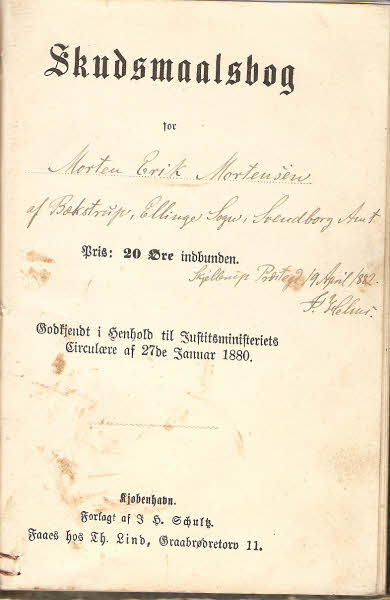 Skudsmaalsbog
for
Morten Erik Mortensen
af Bækstrup, Ellinge Sogn, Svendborg Amt
Pris: 20 Øre indbunden.
Skjellerup Præstegd 19 April 1882.
J. Helms.
Godkjendt i Henhold til Justitsministeriets
Circulære af 27de Januar 1880.
Kjøbenhavn.
Forlagt af J H. Schultz.
Faaes hos Th. Lind, Graabrødretorv 11.